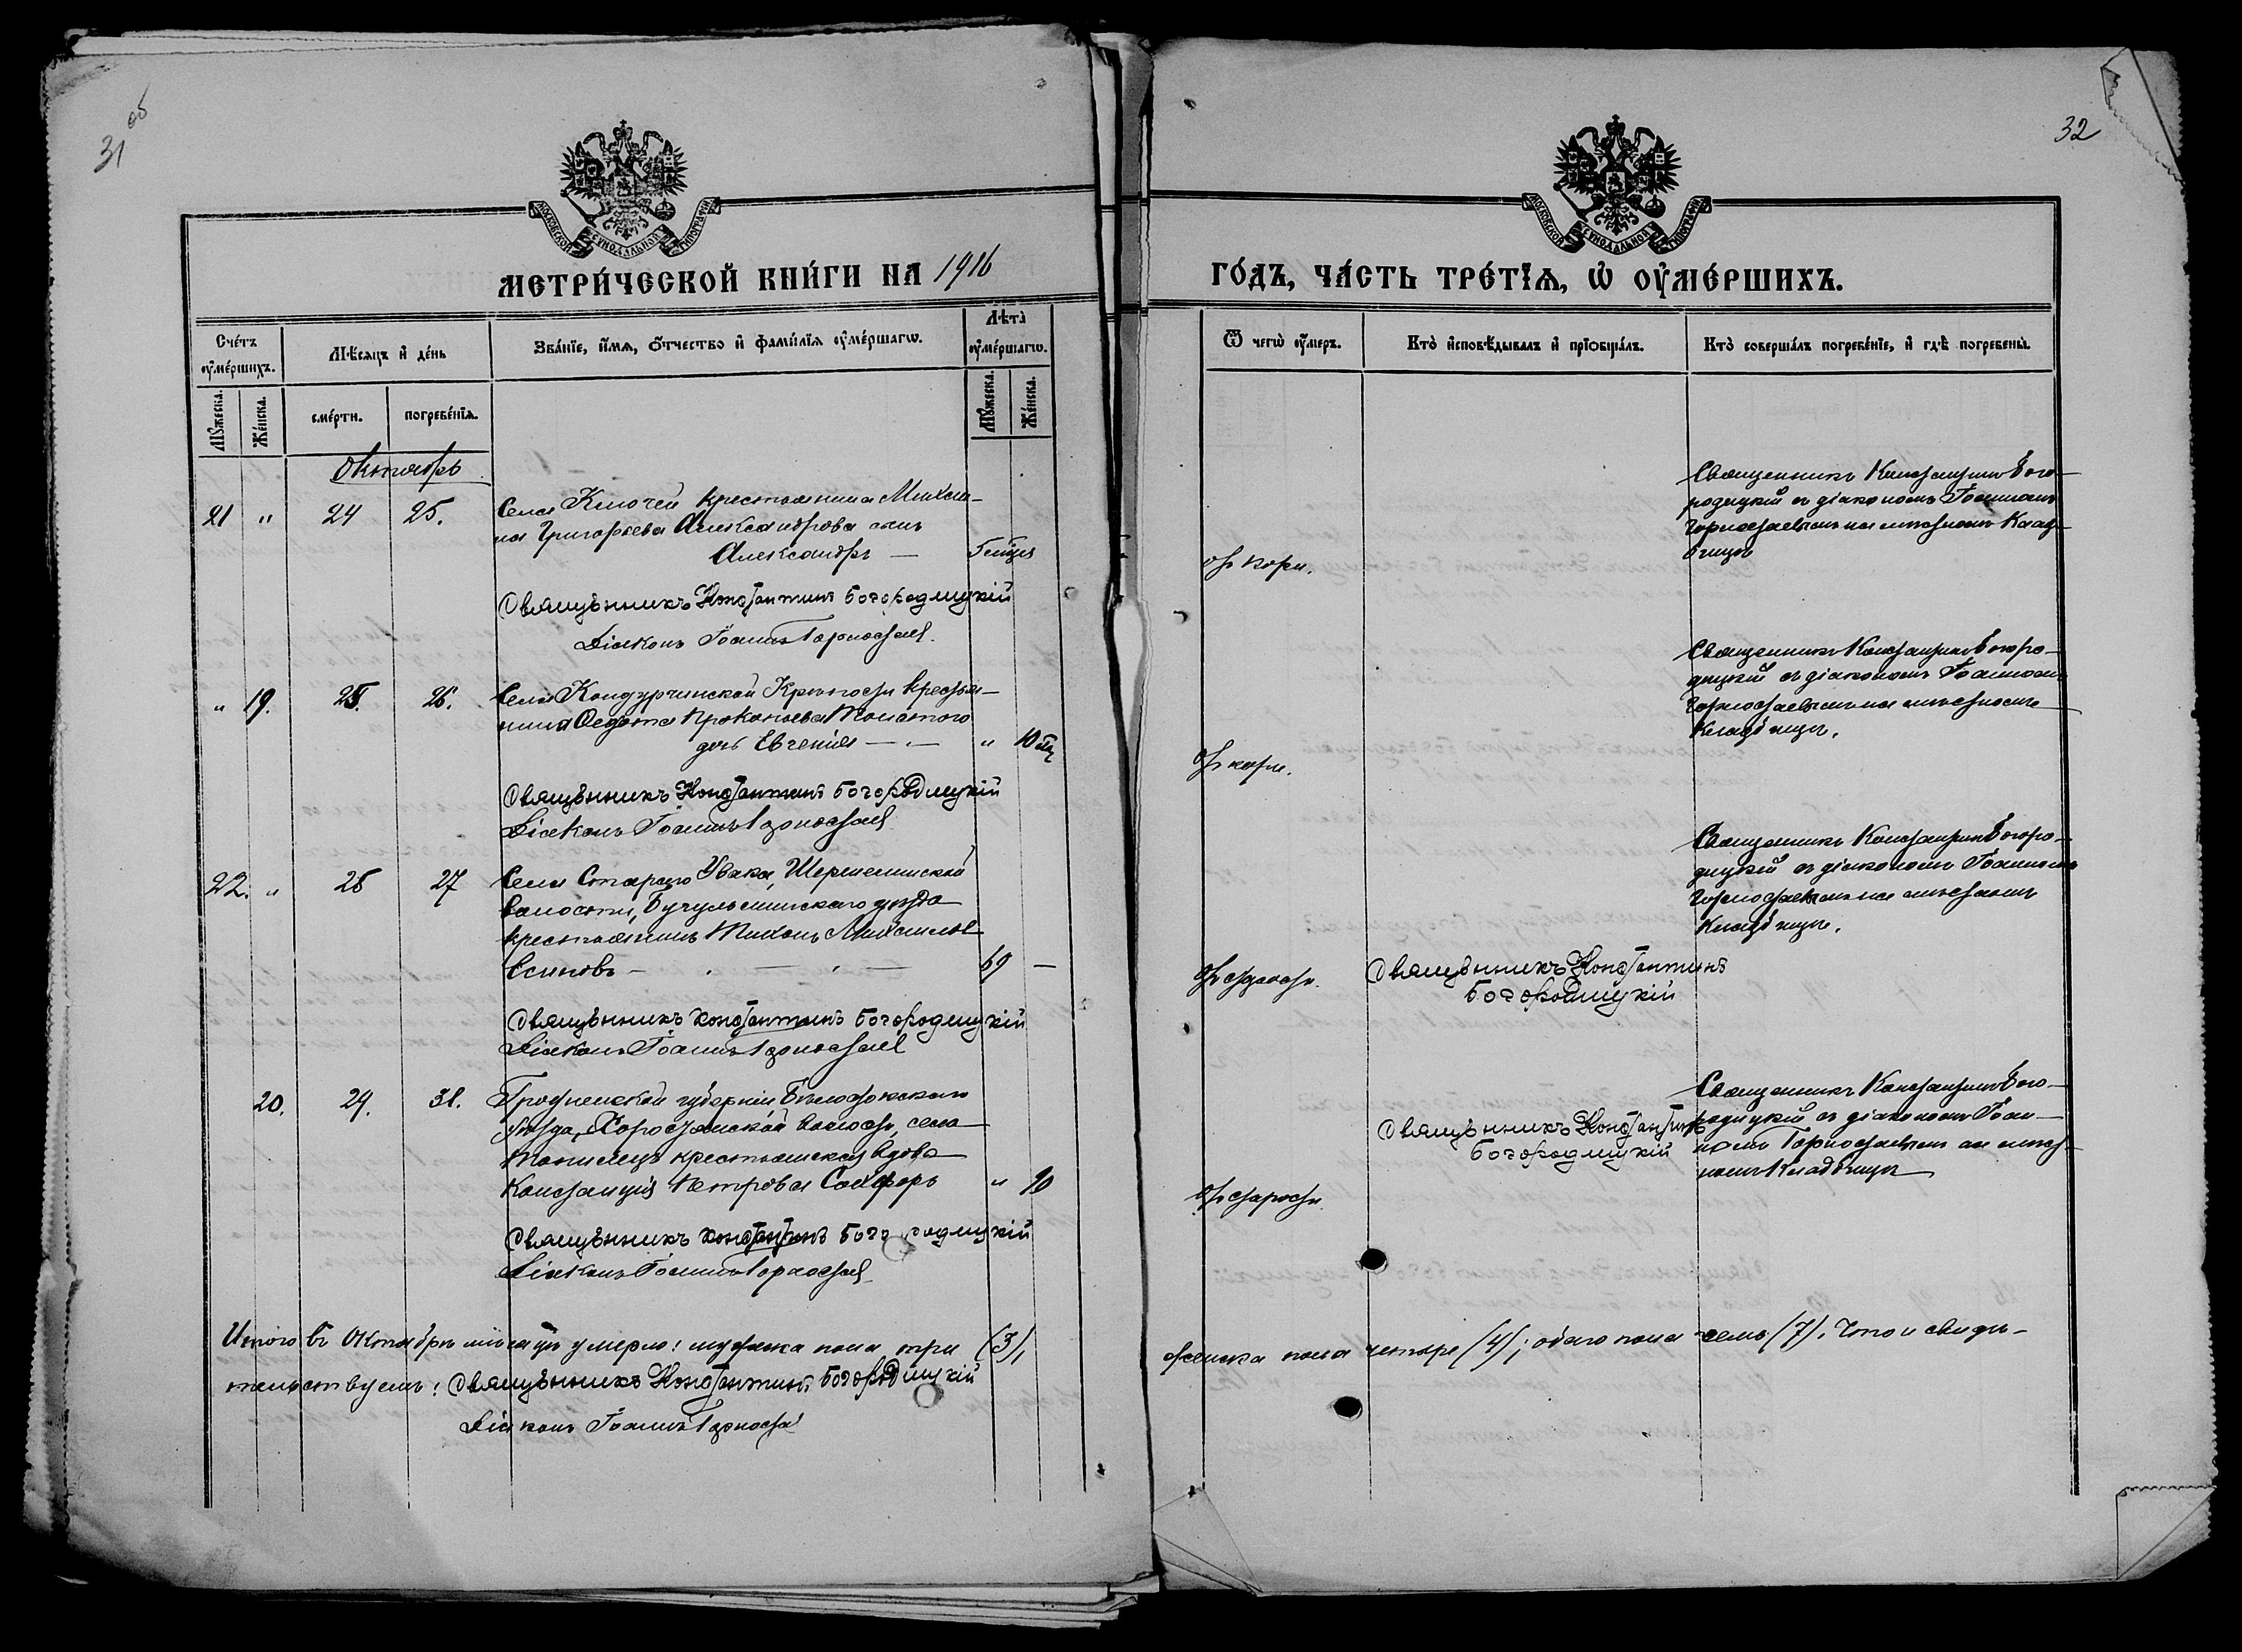 31 об
32
МОСКОВСКОЙ СѴНОДАЛЬНОЙ ТИПОГРАФІИ
МОСКОВСКОЙ СѴНОДАЛЬНОЙ ТИПОГРАФІИ
МЕТРИ́ЧЕСКОЙ КНИ́ГИ НА 1916
ГО́ДЪ, ЧА́СТЬ ТРЕ́ТЇѦ, Ѡ҆ ОУ҆МЕ́РШИХЪ.
Сче́тъ оу҆ме́ршихъ.
Мѣ́сѧцъ и҆ де́нь
Зва́нїе, и҆́мѧ, о҆́тчество и҆ фами́лїѧ оу҆ме́ршагѡ.
Лѣта̀ оу҆ме́ршагѡ.
Ѿ чегѡ̀ оу҆́меръ.
Кто̀ и҆сповѣ́дывалъ и҆ прїѡбща́лъ.
Кто̀ соверша́лъ погребе́нїе, и҆ гдѣ̀ погребены̀.
Мꙋ́жеска.
Же́нска.
сме́рти.
погребе́нїѧ.
Мꙋ́жеска.
Же́нска.
Октябрь
21 " 24 25. Села Ключей крестьянина Михаи-
ла Григорьева Александрова сынъ
Александръ —
Священникъ Константинъ Богородицкій
Діаконъ Іоаннъ Горностаев
отъ кори.
Священникъ Константинъ Бого-
родицкій съ діакономъ Іоанномъ
Горностаевымъ на мѣстномъ клад-
бищѣ
" 19. 25. 26. Села Кондурчинской Крѣпости крестья-
нина Федота Прокопьева Толстого
дочь Евгенія — " 10 мц
Священникъ Константинъ Богородицкій
Діаконъ Іоаннъ Горностаев
отъ кори.
Священникъ Константинъ Богоро-
дицкій съ діакономъ Іоанномъ
Горностаевымъ на мѣстномъ
кладбищѣ.
22. " 26 27 Села Стараго Увака, Шереметинской
волости, Бугульминскаго уѣзда
крестьянинъ Тихонъ Михаиловъ
Есиповъ — 69 —
Священникъ Константинъ Богородицкій
Діаконъ Іоаннъ Горностаев
Священникъ Константинъ
Богородицкій
Священникъ Константинъ Богоро-
дицкій съ діакономъ Іоанномъ
Горностаевымъ на мѣстномъ
кладбищѣ.
20. 29. 31. Гродненской губерніи Бѣлостокскаго
уѣзда, Хорощанской волости, села
крестьянская вдова
Констанція Петрова " 90
Священникъ Константинъ Богородицкій
Діаконъ Іоаннъ Горностаев
отъ старости.
Священникъ Константинъ
Богородицкій
Священникъ Константинъ Бого-
родицкій съ діакономъ Іоан-
номъ Горностаевымъ на мѣст-
номъ кладбищѣ
Итого въ Октябрѣ мѣсяцѣ умерло: мужеска пола три (3),
женска пола четыре (4); обаго пола семь (7). Что и свидѣ-
тельствуемъ: Священникъ Константинъ Богородицкій
Діаконъ Іоаннъ Горноста